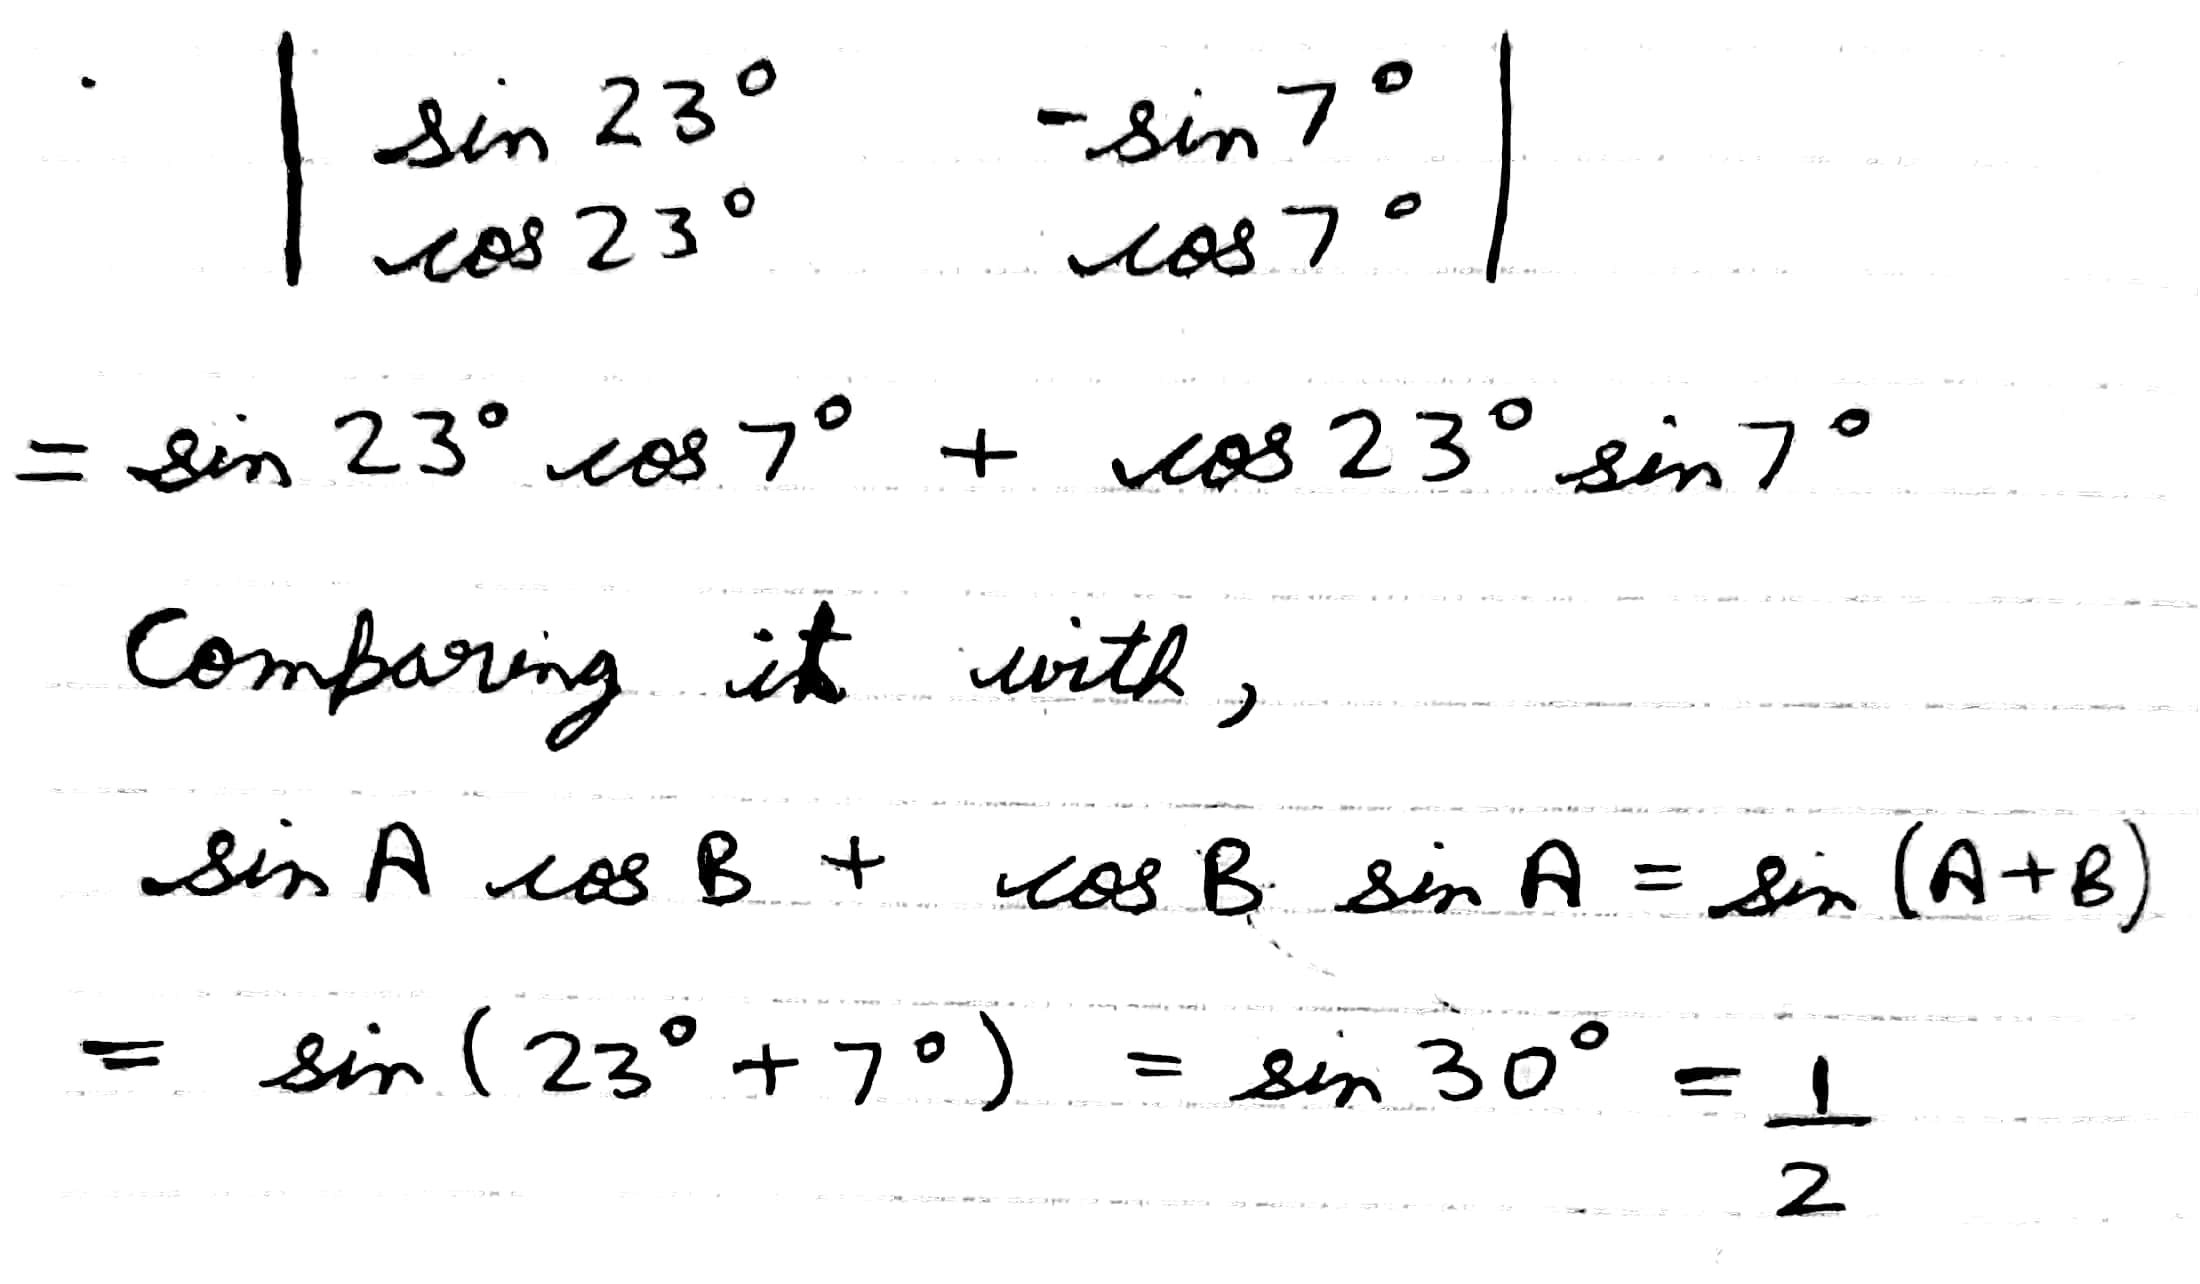 | sin 23° -sin 7° |
| cos 23° cos 7° |
= sin 23° cos 7° + cos 23° sin 7°
Comparing it with,
sin A cos B + cos B sin A = sin (A+B)
= sin (23° + 7°) = sin 30° = 1/2